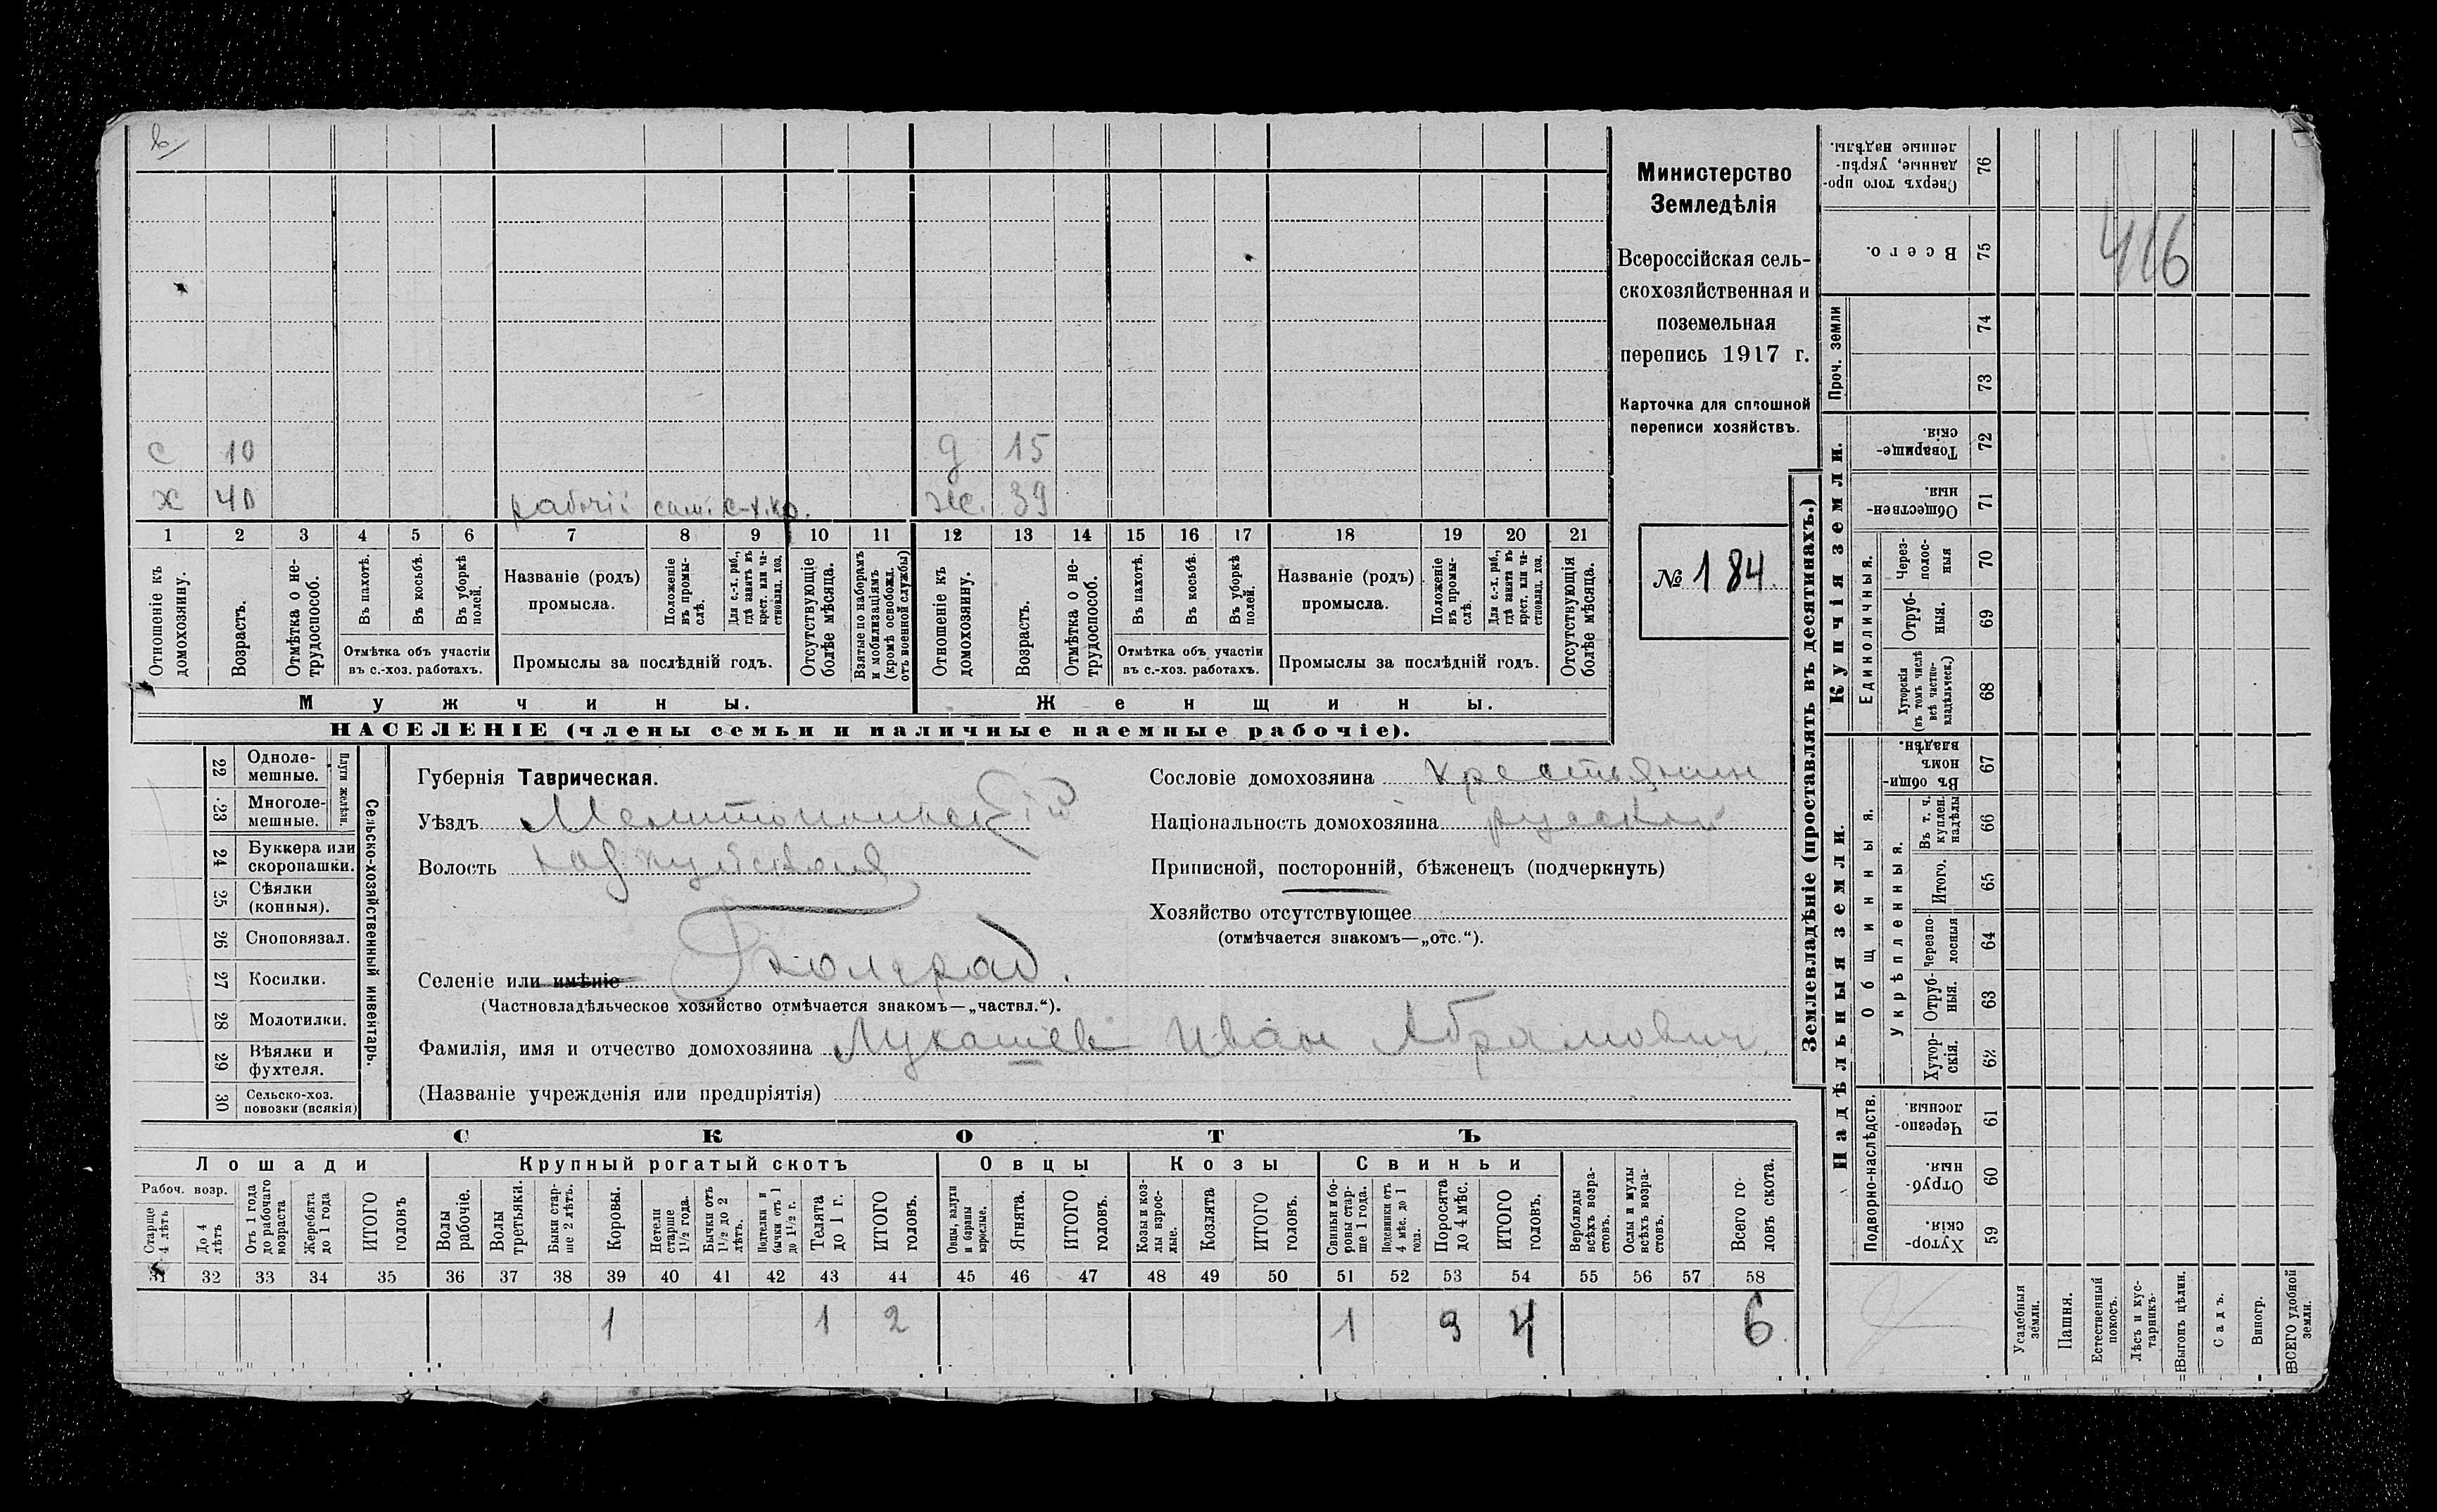 в/
с 10 д 15
х 40 рабочій сам. с-х.кр. ж. 39
1 2 3 4 5 6 7 8 9 10 11 12 13 14 15 16 17 18 19 20 21
Отношеніе къ домохозяину.
Возрастъ.
Отмѣтка о не-трудоспособ.
Въ пахотѣ.
Въ косьбѣ.
Въ уборкѣ полей.
Отмѣтка объ участіи
въ с.-хоз. работахъ.
Названіе (родъ)
промысла.
Положеніе въ промы-слѣ.
Для с.-х. раб., гдѣ занятъ въ крест. или ча-стновлад. хоз.
Промыслы за послѣдній годъ.
Отсутствующіе болѣе мѣсяца.
Взятые по наборамъ и мобилизаціямъ (кромѣ освобожд. отъ военной службы)
Отношеніе къ домохозяину.
Возрастъ.
Отмѣтка о не-трудоспособ.
Въ пахотѣ.
Въ косьбѣ.
Въ уборкѣ полей.
Отмѣтка объ участіи
въ с.-хоз. работахъ.
Названіе (родъ)
промысла.
Положеніе въ промы-слѣ.
Для с.-х. раб., гдѣ занята въ крест. или ча-стновлад. хоз.
Промыслы за послѣдній годъ.
Отсутствующія болѣе мѣсяца.
Мужчины. Женщины.
НАСЕЛЕНІЕ (члены семьи и наличные наемные рабочіе).
Министерство
Земледѣлія
Всероссійская сель-
скохозяйственная и
поземельная
перепись 1917 г.
Карточка для сплошной
переписи хозяйствъ.
№ 184
22 Одноле-мешные.
23 Многоле-мешные.
Плуги желѣзн.
24 Буккера или скоропашки.
25 Сѣялки (конныя).
26 Сноповязал.
27 Косилки.
28 Молотилки.
29 Вѣялки и фухтеля.
30 Сельско-хоз. повозки (всякія)
Сельско-хозяйственный инвентарь.
Губернія Таврическая.
Уѣздъ Мелитопольскій
Волость
Селеніе или имѣніе
(Частновладѣльческое хозяйство отмѣчается знакомъ—„частвл.“).
Фамилія, имя и отчество домохозяина Лукашев Иван Абрамович.
(Названіе учрежденія или предпріятія)
Сословіе домохозяина крестьянин
Національность домохозяина русскій
Приписной, посторонній, бѣженецъ (подчеркнуть)
Хозяйство отсутствующее
(отмѣчается знакомъ—„отс.“).
СКОТЪ
Лошади Крупный рогатый скотъ Овцы Козы Свиньи
Рабоч. возр.
Старше 4 лѣтъ
До 4 лѣтъ
Отъ 1 года до рабочаго возраста
Жеребята до 1 года
ИТОГО головъ
Волы рабочіе.
Волы третьяки.
Быки стар-ше 2 лѣтъ.
Коровы.
Нетели старше 1½ года.
Бычки отъ 1½ до 2 лѣтъ.
Подтелки и бычки отъ 1 до 1½ г.
Телята до 1 г.
ИТОГО головъ.
Овцы, валухи и бараны взрослые.
Ягнята.
ИТОГО головъ.
Козы и коз-лы взрос-лые.
Козлята
ИТОГО головъ.
Свиньи и бо-ровы стар-ше 1 года.
Подсвинки отъ 4 мѣс. до 1 года.
Поросята до 4 мѣс.
ИТОГО головъ.
Верблюды всѣхъ возра-стовъ.
Ослы и мулы всѣхъ возра-стовъ.
Всего го-ловъ скота.
31 32 33 34 35 36 37 38 39 40 41 42 43 44 45 46 47 48 49 50 51 52 53 54 55 56 57 58
1 1 2 1 3 4 6
Землевладѣніе (проставлять въ десятинахъ.)
Надѣльныя земли. Купчія земли. Проч. земли
Подворно-наслѣдств. Общинныя. Укрѣпленныя. Единоличныя.
Сверхъ того про-данные, укрѣп-ленные надѣлы. 76
Всего. 75
416
74
73
Товарище-скія. 72
Обществен-ныя. 71
Через-полос-ныя 70
Отруб-ныя. 69
Хуторскія (въ томъ числѣ всѣ частно-владѣльческ.) 68
Въ общи-номъ владѣн. 67
Въ т. ч. куплен. надѣлы 66
Итого. 65
Черезпо-лосныя 64
Отруб-ныя. 63
Хутор-скія. 62
Черезпо-лосныя. 61
Отруб-ныя. 60
Хутор-скія. 59
Усадебныя земли.
Пашня.
Естественный покосъ.
Лѣсъ и кус-тарникъ.
Выгонъ цѣлин.
Садъ.
Виногр.
ВСЕГО удобной земли.